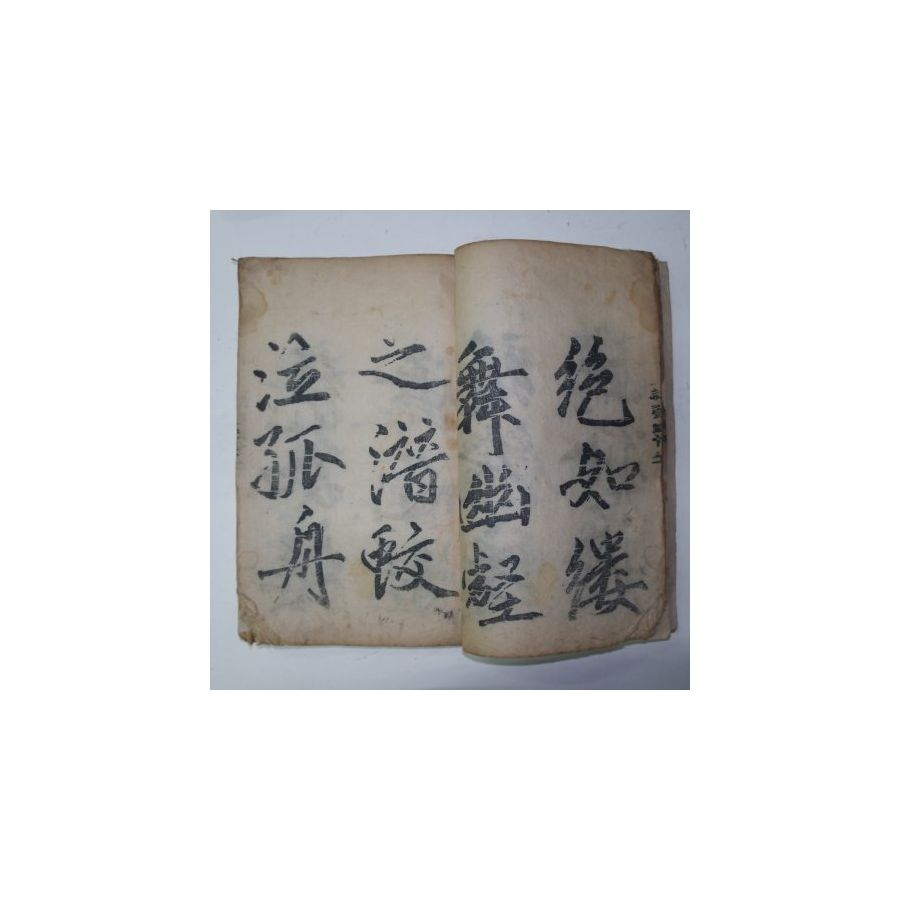 絶如縷
舞幽壑
之潛蛟
泣孤舟